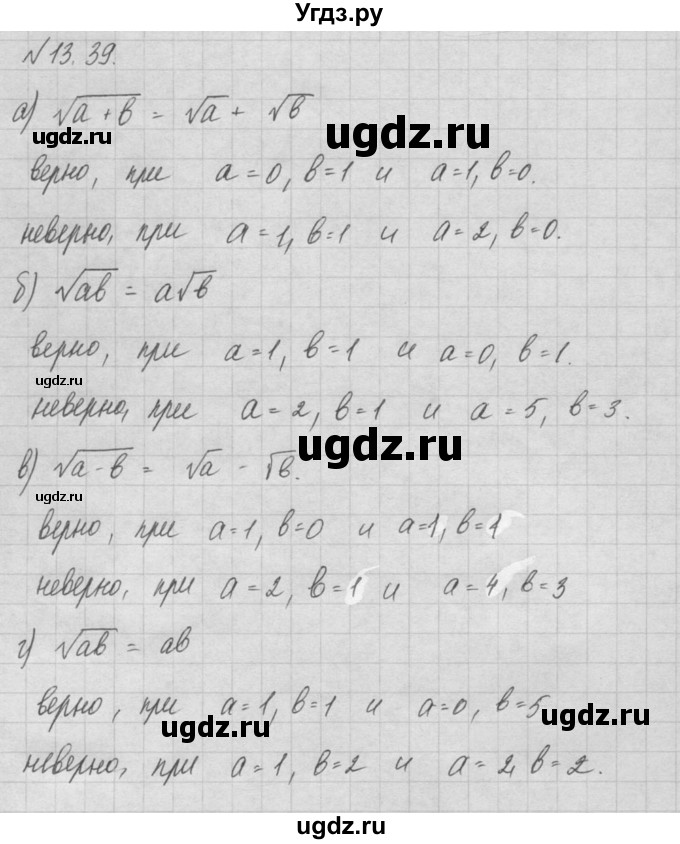 Угдз.ру
№13.39.
а) √a+b = √a + √b
ugdz.ru
ugdz.ru
верно, при a=0, b=1 и a=1, b=0.
неверно, при a=1, b=1 и a=2, b=0.
б) √ab = a√b
верно, при a=1, b=1 и a=0, b=1.
ugdz.ru
неверно, при a=2, b=1 и a=5, b=3.
ugdz.ru
в) √a-b = √a - √b.
ugdz.ru
верно, при a=1, b=0 и a=1, b=1
неверно, при a=2, b=1 и a=4, b=3
г) √ab = ab
верно, при a=1, b=1 и a=0, b=5
ugdz.ru
ugdz.ru
неверно, при a=1, b=2 и a=2, b=2.
ugdz.ru